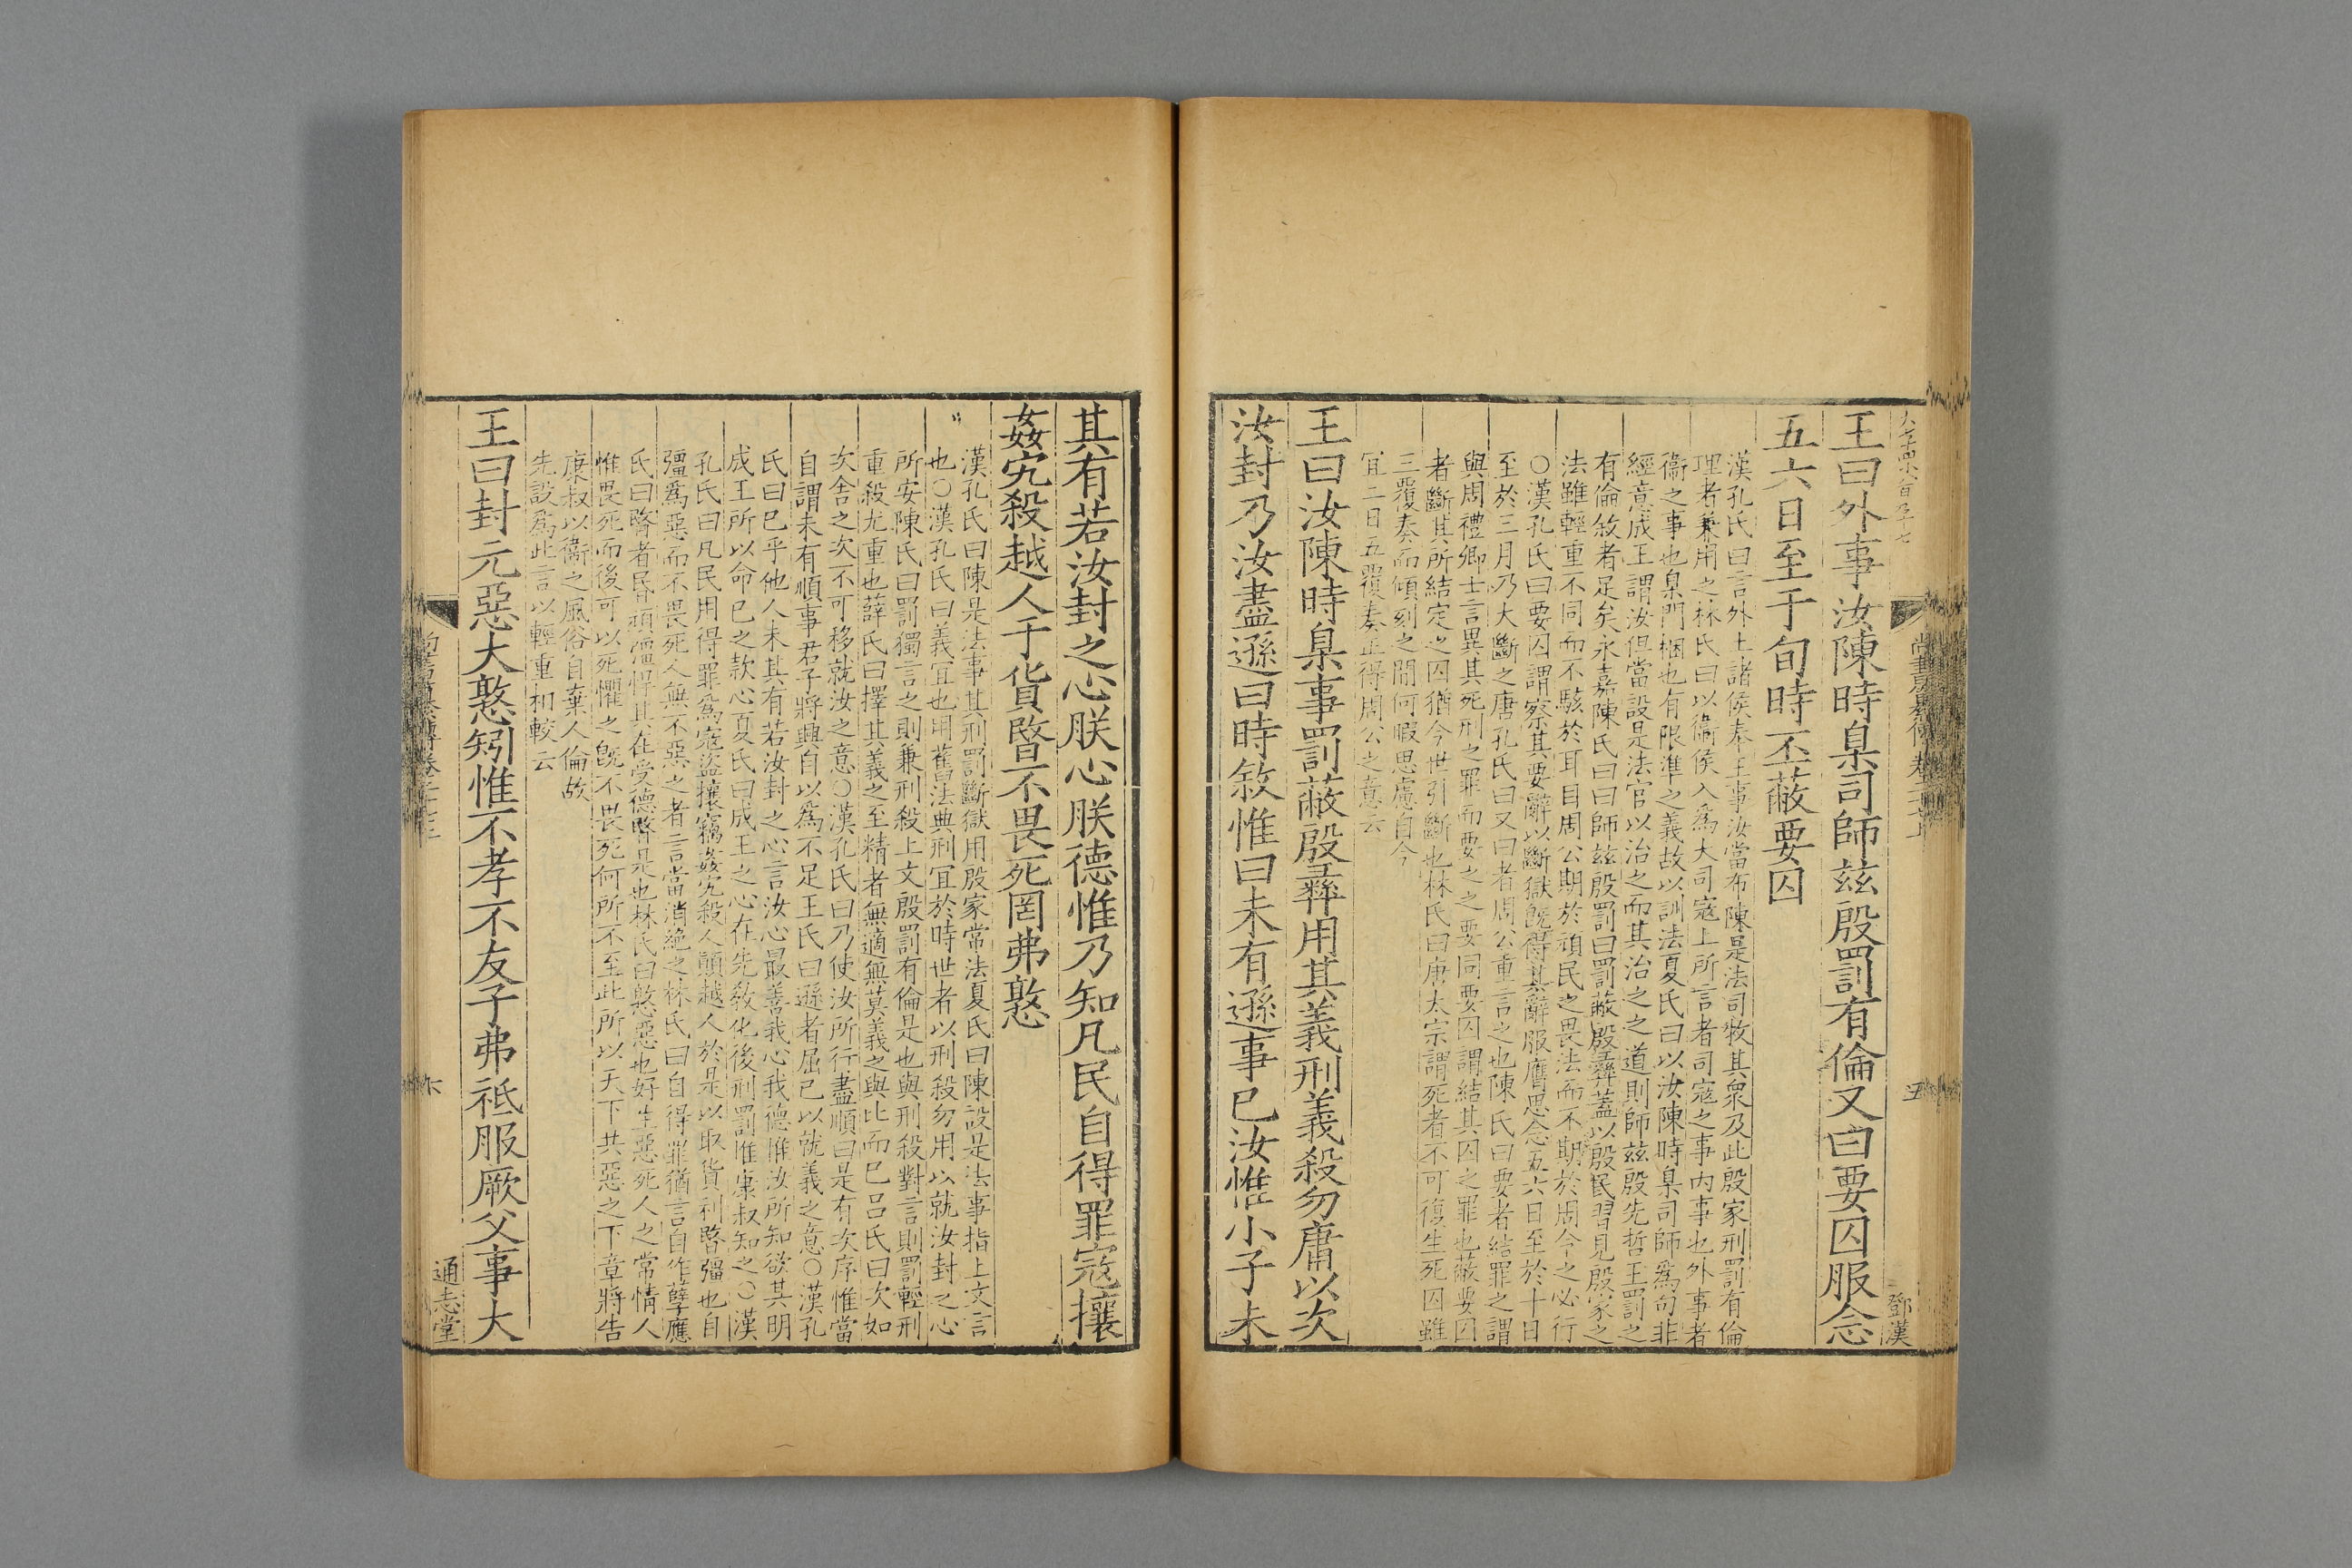 王曰外事汝陳時臬司師茲殷罰有倫又曰要囚服念
五六日至于旬時丕蔽要囚
漢孔氏曰言外土諸侯奉王事汝當布陳是法司牧其衆及此殷家刑罰有倫
理者兼用之林氏曰以衞侯入爲大司寇上所言者司寇之事内事也外事者
衞之事也臬門梱也有限準之義故以訓法夏氏曰以汝陳時臬司師爲句非
經意成王謂汝但當設是法官以治之而其治之之道則師茲殷先哲王罰之
有倫敘者足矣永嘉陳氏曰曰師茲殷罰曰罰蔽殷彝蓋以殷民習見殷家之
法雖輕重不同而不駭於耳目周公期於頑民之畏法而不期於周今之必行
○漢孔氏曰要囚謂察其要辭以斷獄既得其辭服膺思念五六日至於十日
至於三月乃大斷之唐孔氏曰又曰者周公重言之也陳氏曰要者結罪之謂
與周禮鄉士言異其死刑之罪而要之之要同要囚謂結其囚之罪也蔽要囚
者斷其所結定之囚猶今世引斷也林氏曰唐太宗謂死者不可復生死囚雖
三覆奏而傾刻之閒何暇思慮自今
宜二日五覆奏正得周公之意云
王曰汝陳時臬事罰蔽殷彝用其義刑義殺勿庸以次
汝封乃汝盡遜曰時敘惟曰未有遜事已汝惟小子未
鄧漢
其有若汝封之心朕心朕德惟乃知凡民自得罪寇攘
姦宄殺越人于貨暋不畏死罔弗憝
漢孔氏曰陳是法事其刑罰斷獄用殷家常法夏氏曰陳設是法事指上文言
也○漢孔氏曰義宜也用舊法典刑宜於時世者以刑殺勿用以就汝封之心
所安陳氏曰罰獨言之則兼刑殺上文殷罰有倫是也與刑殺對言則罰輕刑
重殺尤重也薛氏曰擇其義之至精者無適無莫義之與比而已呂氏曰次如
次舍之次不可移就汝之意○漢孔氏曰乃使汝所行盡順曰是有次序惟當
自謂未有順事君子將興自以爲不足王氏曰遜者屈已以就義之意○漢孔
氏曰已乎他人未其有若汝封之心言汝心最善我心我德惟汝所知欲其明
成王所以命已之款心夏氏曰成王之心在先敎化後刑罰惟康叔知之○漢
孔氏曰凡民用得罪爲寇盜攘竊姦宄殺人顚越人於是以取貨利暋彊也自
彊爲惡而不畏死人無不惡之者言當消絶之林氏曰自得罪猶言自作孽應
氏曰暋者民昏頑彊悍其在受德暋是也林氏曰憝惡也好生惡死人之常情人
惟畏死而後可以死懼之既不畏死何所不至此所以天下共惡之下章將告
康叔以衞之風俗自棄人倫故
先設爲此言以輕重相較云
王曰封元惡大憝矧惟不孝不友子弗祗服厥父事大
通志堂